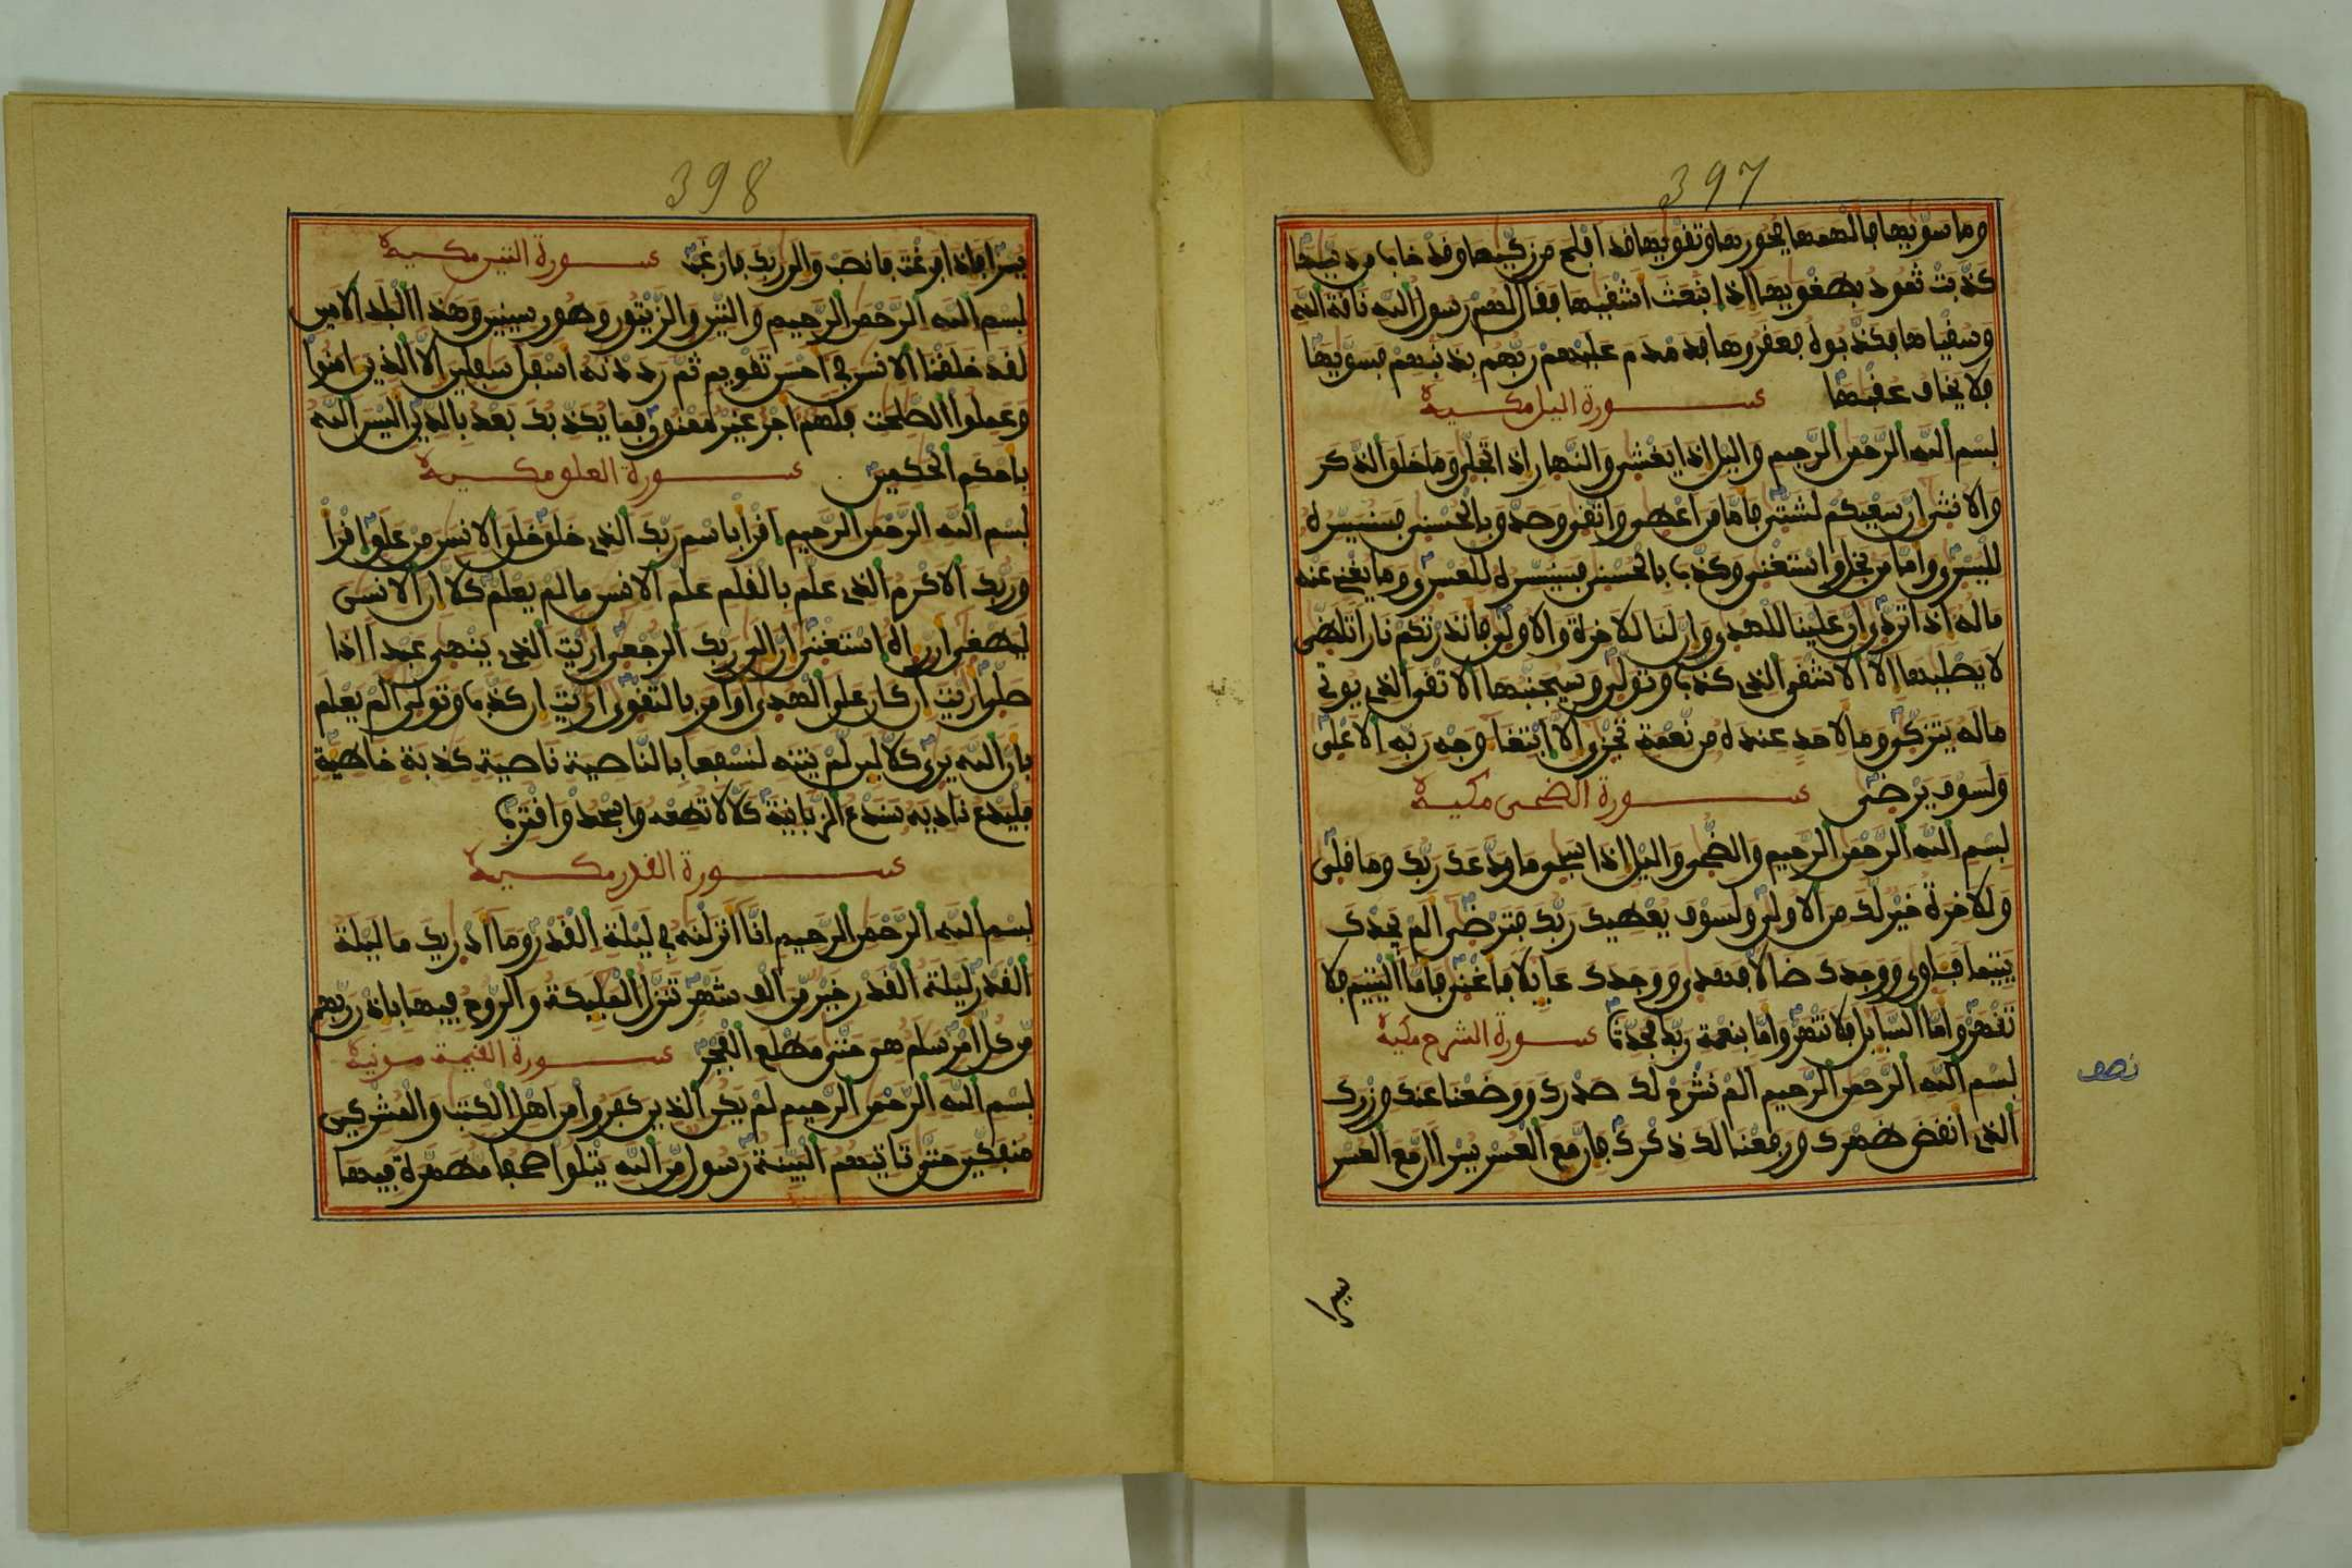 397
وما سوّيها فالهمها فجورها وتقويها قد افلح من زكّيها وقد خاب من دسّيها
كذّبت ثمود بطغويها اذ انبعث اشقيها فقال لهم رسول الله ناقة الله
وسقياها فكذّبوه فعقروها فدمدم عليهم ربّهم بذنبهم فسوّيها
فلا يخاف عقبها سورة اليل مكية
بسم الله الرّحمن الرّحيم واليل اذا يغشى والنّهار اذا تجلّى وما خلق الذّكر
والانثى ان سعيكم لشتّى فامّا من اعطى واتّقى وصدّق بالحسنى فسنيسّره
لليسرى وامّا من بخل واستغنى وكذّب بالحسنى فسنيسّره للعسرى وما يغنى عنه
ماله اذا تردّى ان علينا للهدى وان لنا للاخرة والاولى فانذرتكم نارا تلظّى
لا يصليها الا الاشقى الذى كذّب وتولّى وسيجنّبها الاتقى الذى يوتى
ماله يتزكّى وما لاحد عنده من نّعمة تجزى الّا ابتغا وجه ربّه الاعلى
ولسوف يرضى سورة الضحى مكية
بسم الله الرّحمن الرّحيم والضّحى واليل اذا سجى ما ودّعك ربّك وما قلى
وللاخرة خير لك من الاولى ولسوف يعطيك ربّك فترضى الم يجدك
يتيما فاوى ووجدك ضالا فهدى ووجدك عايلا فاغنى فامّا اليتيم فلا
تقهر وامّا السّايل فلا تنهر وامّا بنعمة ربّك فحدّث سورة الشرح مكية
بسم الله الرّحمن الرّحيم الم نشرح لك صدرك ووضعنا عنك وزرك
الذى انقض ظهرك ورفعنا لك ذكرك فان مع العسر يسرا ان مع العسر
نصف
يسرا
398
يسرا فاذا فرغت فانصب والى ربّك فارغب سورة التين مكية
بسم الله الرّحمن الرّحيم والتّين والزّيتون وطور سينين وهذا البلد الامين
لقد خلقنا الانسن فى احسن تقويم ثمّ رددنه اسفل سفلين الّا الذين امنوا
وعملوا الصّلحت فلهم اجر غير ممنون فما يكذّبك بعد بالدّين اليس الله
باحكم الحكمين سورة العلق مكية
بسم الله الرّحمن الرّحيم اقرا باسم ربّك الذى خلق خلق الانسن من علق اقرا
وربّك الاكرم الذى علّم بالقلم علّم الانسن ما لم يعلم كلّا ان الانسن
ليطغى ان راه استغنى ان الى ربّك الرّجعى اريت الذى ينهى عبدا اذا
صلّى اريت ان كان على الهدى او امر بالتّقوى اريت ان كذّب وتولّى الم يعلم
بان الله يرى كلّا لين لّم ينته لنسفعا بالنّاصية ناصية كذبة خاطية
فليدع ناديه سندع الزّبانية كلّا لا تطعه واسجد واقترب
سورة القدر مكية
بسم الله الرّحمن الرّحيم انّا انزلنه فى ليلة القدر وما ادريك ما ليلة
القدر ليلة القدر خير مّن الف شهر تنزّل المليكة والرّوح فيها باذن ربّهم
مّن كلّ امر سلم هى حتّى مطلع الفجر سورة القيمة مدنية
بسم الله الرّحمن الرّحيم لم يكن الذين كفروا من اهل الكتب والمشركين
منفكّين حتّى تاتيهم البيّنة رسول مّن الله يتلوا صحفا مّطهّرة فيها